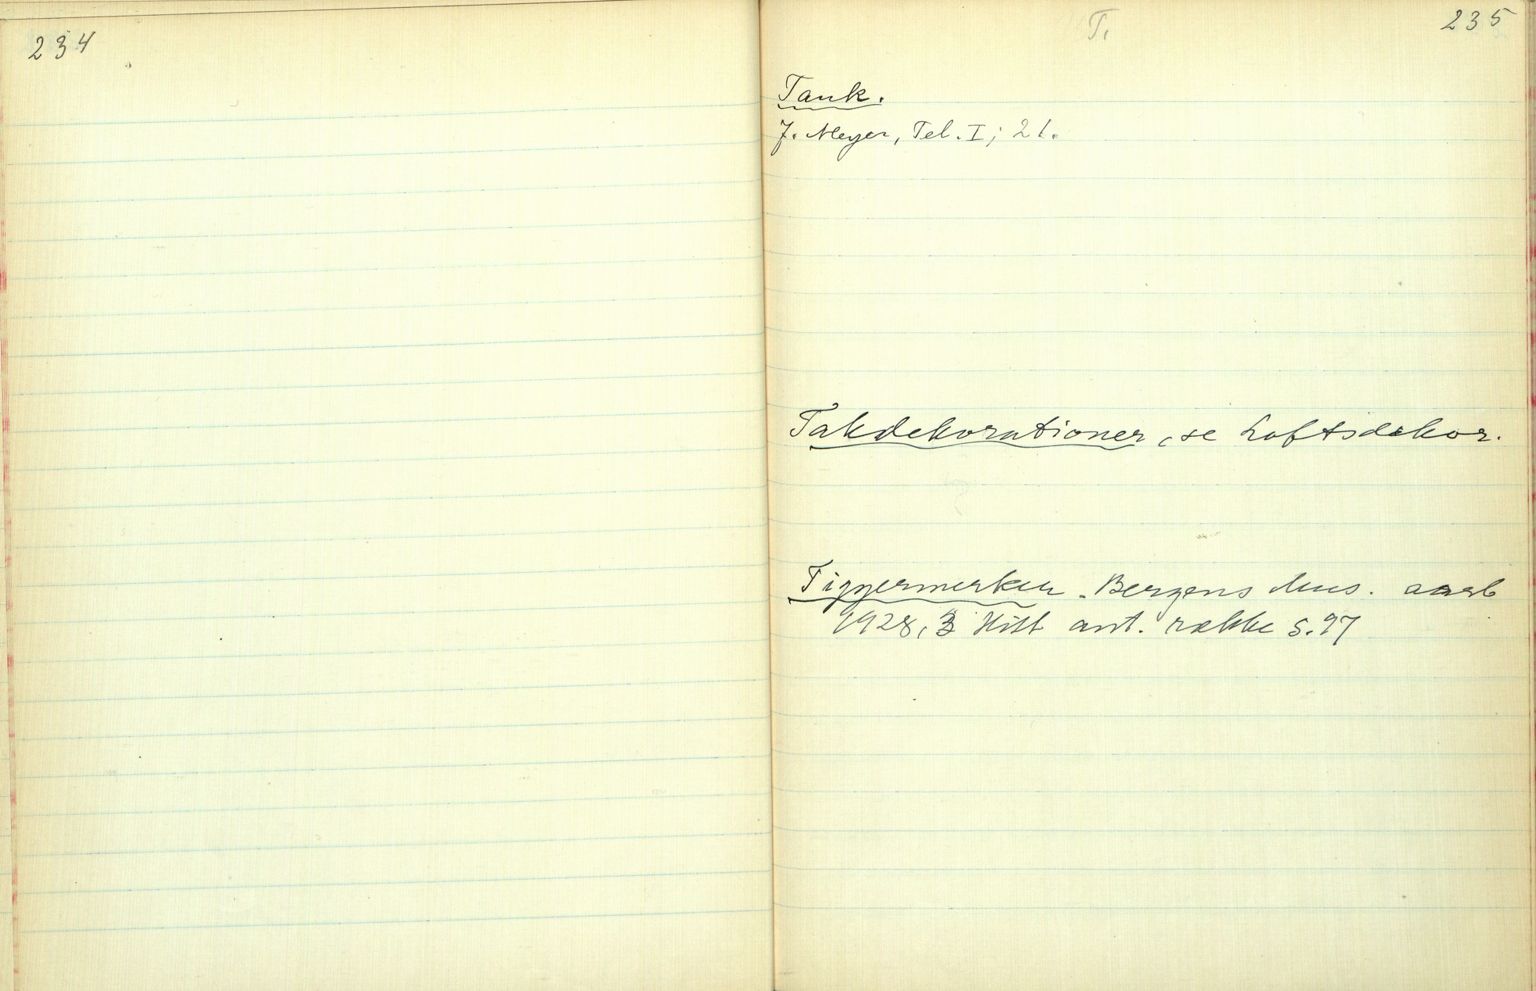 234
T.
235
Tank.
J. Meyer, Tel. I; 21.
Takdekorationer, se Loftsdekor.
Tiggermerker. Bergens Mus. aarb
1928, 3 Hist ant. rekke S. 97